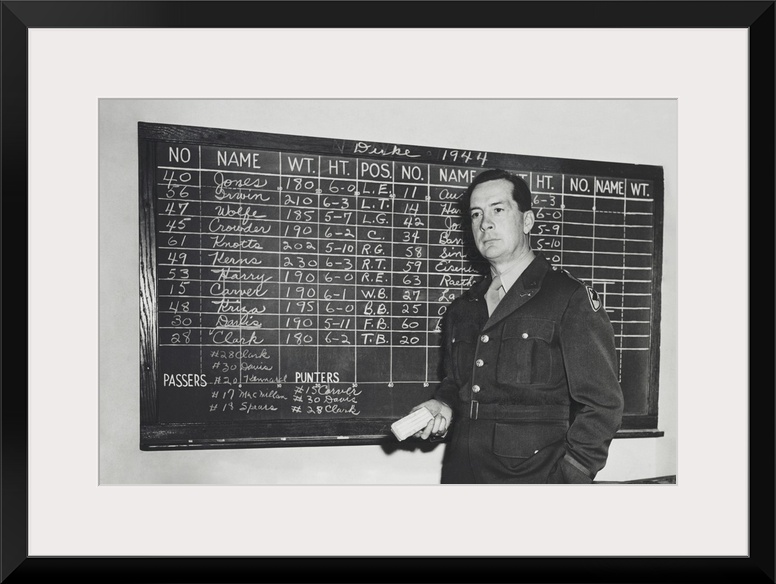 Duke 1944
NO NAME WT. HT. POS. NO. NAME HT. NO. NAME WT.
40 Jones 180 6-0 L.E. 11 6-3
56 Irwin 210 6-3 L.T. 14 6-0
47 Wolfe 185 5-7 L.G. 42 5-9
45 Crowder 190 6-2 C. 34 5-10
61 Knotts 202 5-10 R.G. 58
49 Kerns 230 6-3 R.T. 59
53 Harry 190 6-0 R.E. 63
15 Carver 190 6-1 W.B. 27
48 Kriza 195 6-0 B.B. 25
30 Davis 190 5-11 F.B. 60
28 Clark 180 6-2 T.B. 20
#28 Clark
#30 Davis
PASSERS #20 PUNTERS
#17 McMillan #15 Carver
#19 Spears #30 Davis
#28 Clark